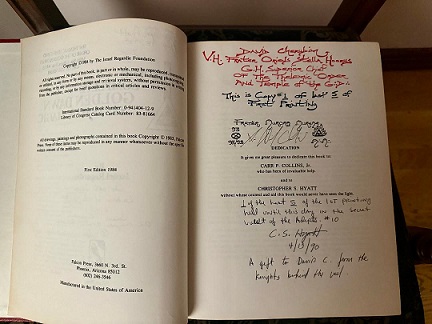 Copyright ©1984 by The Israel Regardie Foundation
All rights reserved. No part of this book, in part or in whole, may be reproduced, transmitted,
or utilized, in any form or by any means, electronic or mechanical, including photocopying,
recording, or by any information storage and retrieval system, without permission in writing
from the publisher, except for brief quotations in critical articles and reviews.
International Standard Book Number: 0-941404-12-
Library of Congress Catalog Card Number: 83-81664
All drawings, paintings and photographs contained in this book Copyright ©
None of these
without the
consent of the publishers.
First Edition 1984
Falcon Press, 3660 N. 3rd. St.
Phoenix, Arizona 85012
(602) 246-3546
Manufactured in the United States of America
David Cherubim
V.H. Frater
G.H.
Of The Thelemic Order
And Temple of the
This is Copy #1 of last 5 of
First Printing
Frater
DEDICATION
It gives me great pleasure to dedicate this book to:
CARR P. COLLINS, Jr.
who has been of invaluable help.
and to
CHRISTOPHER S. HYATT
without whose counsel and aid this book would never have seen the light.
1 of the last 5 of the 1st printing
held until this day in the secret
vault of the Adepts #10
C.S. Hyatt
4/13/90
A gift to David C. from the
Knights behind the veil